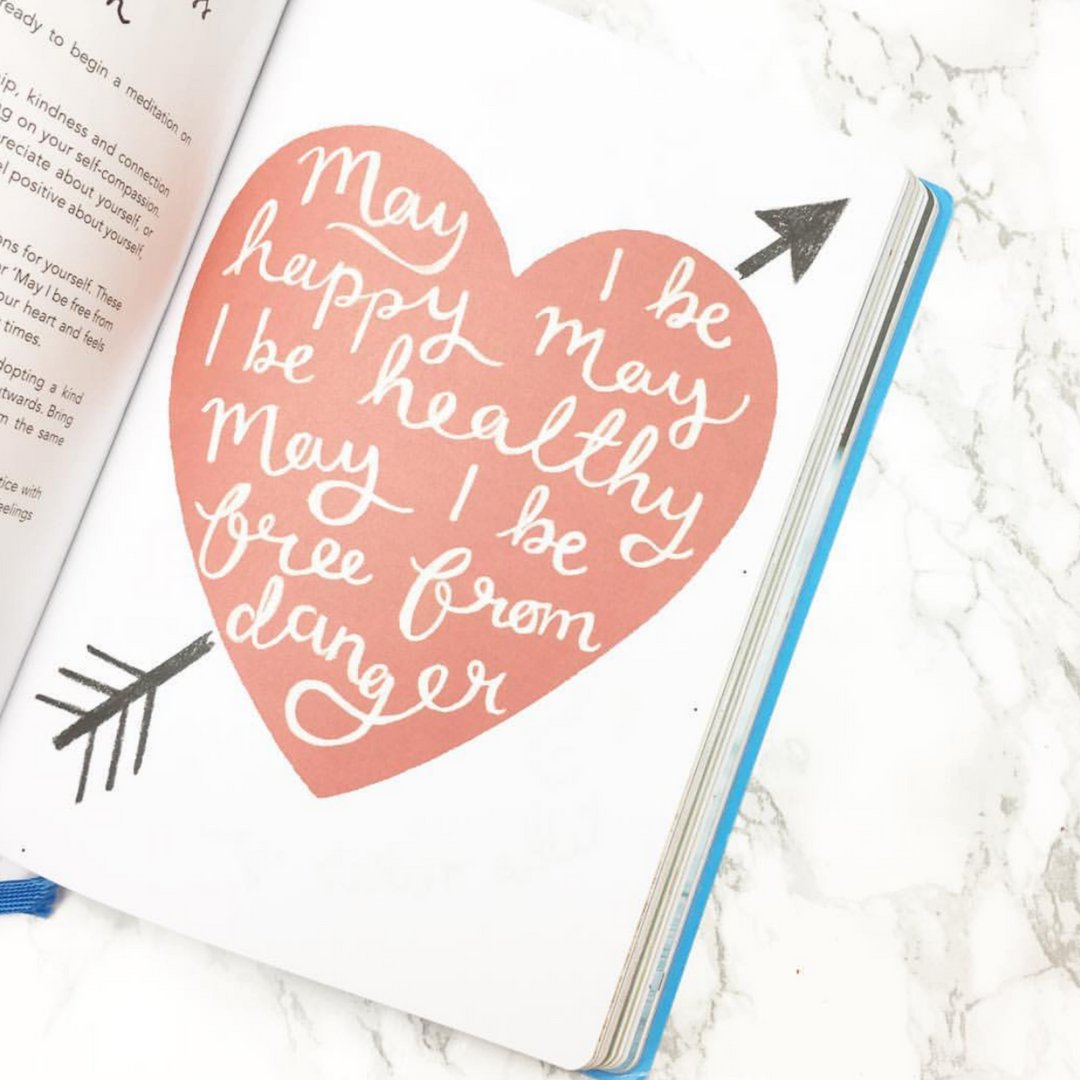 ready to begin a meditation on
ip, kindness and connection
g on your self-compassion.
reciate about yourself, or
el positive about yourself,
ns for yourself. These
r 'May I be free from
our heart and feels
times.
dopting a kind
utwards. Bring
m the same
tice with
eelings
May I be
happy may
I be healthy
May I be
free from
danger